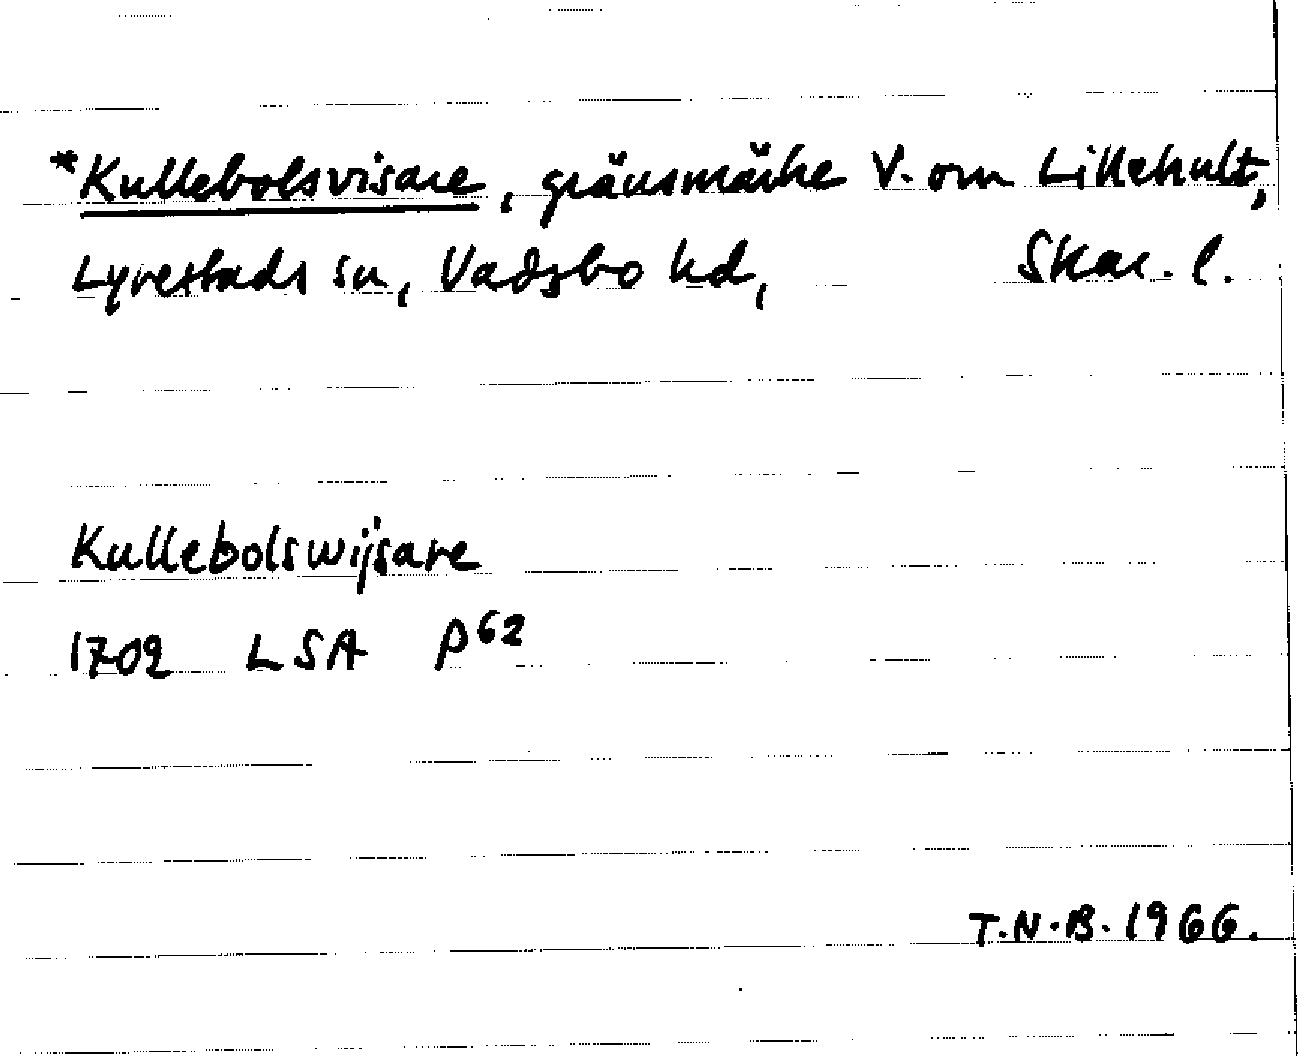 *Kullebolsvisare, gränsmärke V. om Lillehult,
Lyrestads sn, Vadsbo hd, Skar. l.
Kullebolswijsare
1702 LSA P 62
T.N.B. 1966.